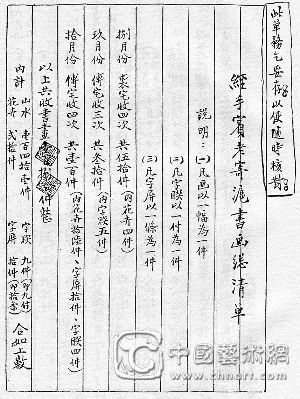 此单務乞妥存以便随時核對
經手賓老寄滬書画總清单
說明：(一)凡画以一幅為一件
(二)凡字联以一付為一件
(三)凡字屏以一條為一件
捌月份 裘宅收四次 共伍拾件(內花卉四件)
玖月份 傅宅收三次 共叁拾件(內字联五件)
拾月份 傅宅收四次 共壹百件(內花卉拾陸件、字屏拾件、字联四件)
以上共收書畫 捌拾件整
內計 山水 壹百四拾壹件 字联 九件(即九付)
花卉 貳拾件 字屏 拾件(即拾条) 合如上數
中國藝術網
www.chnart.com